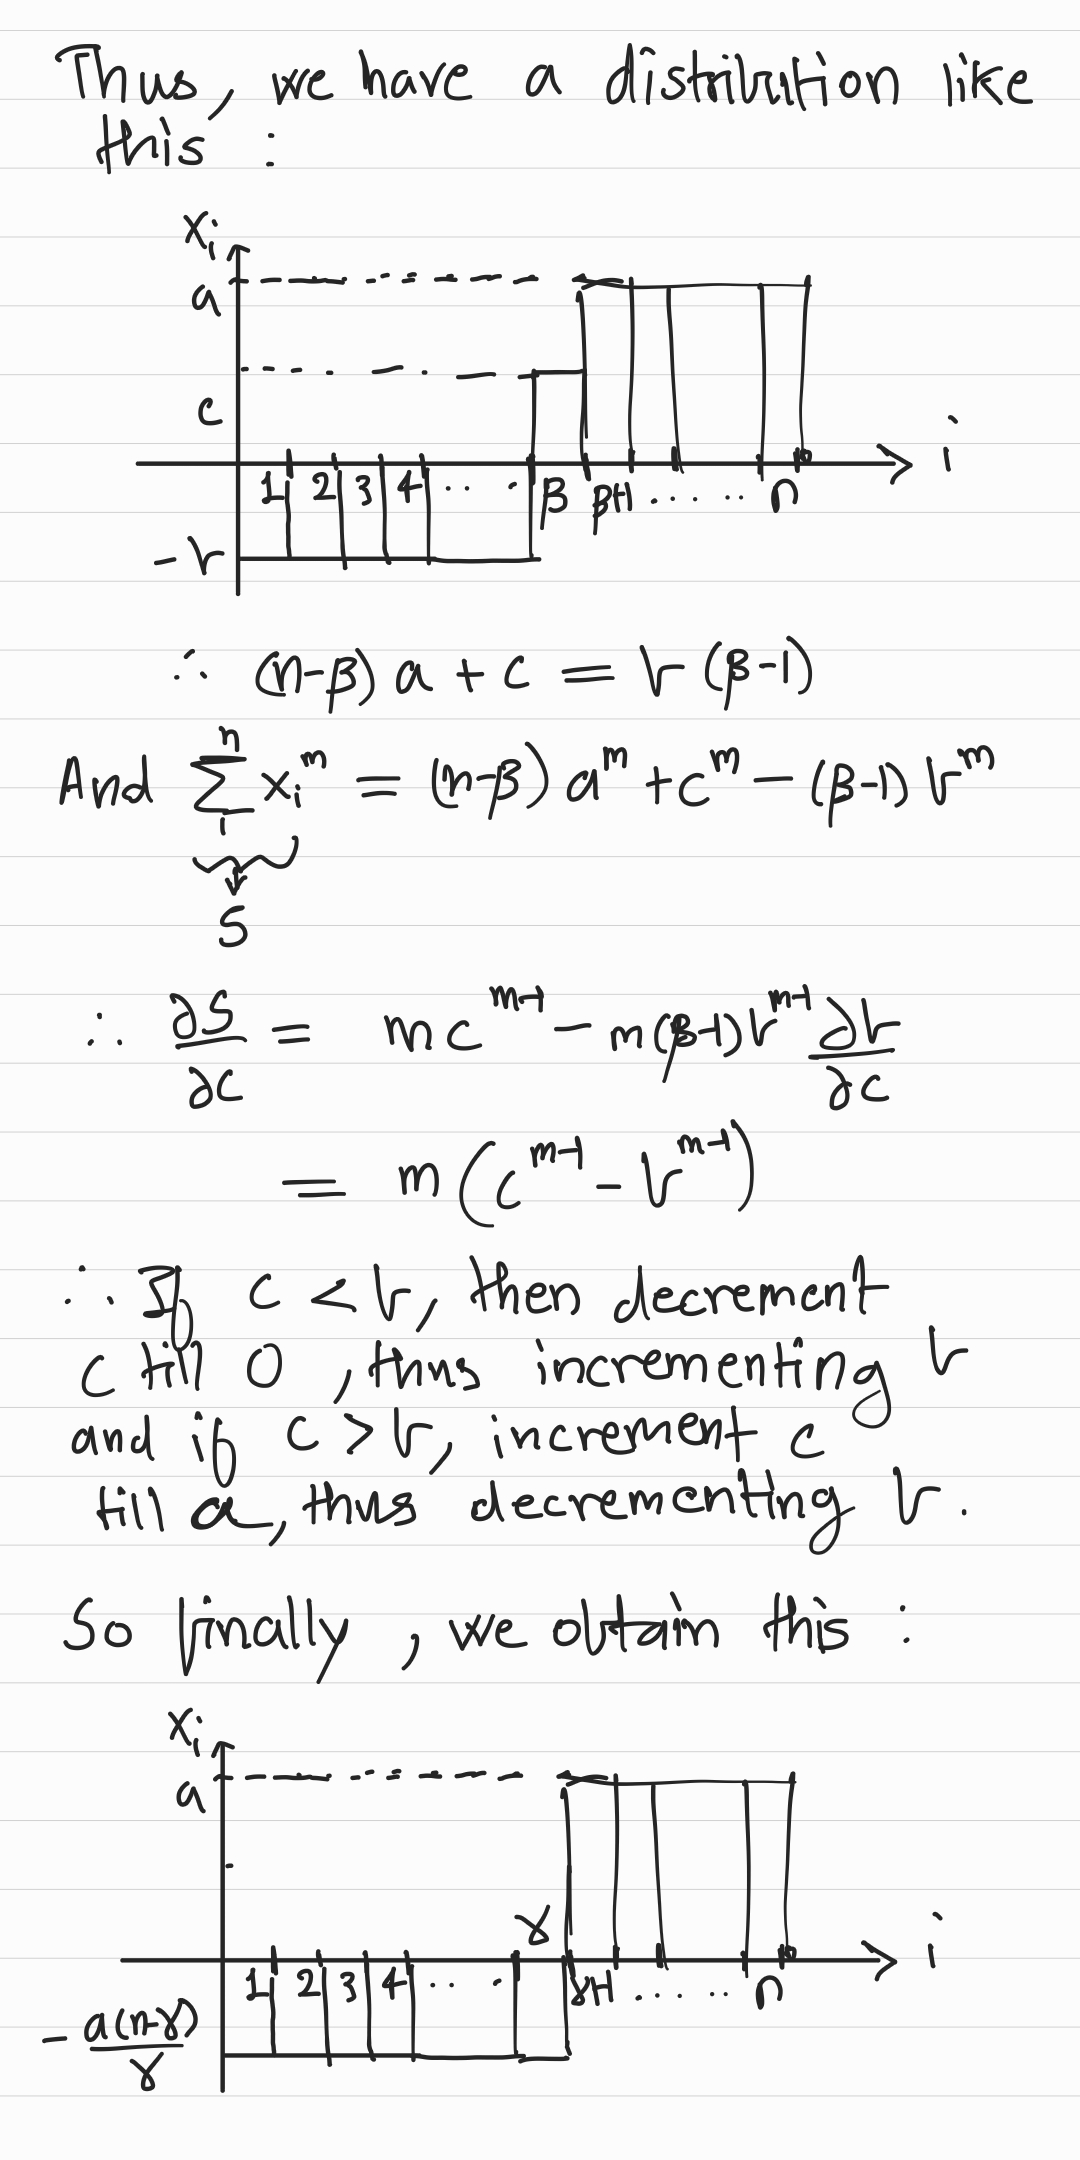 Thus, we have a distribution like
this :
xᵢ
a
c
i
1 2 3 4 .. . β β+1 .... n
-b
∴ (n-β) a + c = b (β-1)
And ∑ᵢⁿ xᵢᵐ = (n-β) aᵐ + cᵐ - (β-1) bᵐ
↓
S
∴ ∂S/∂c = m cᵐ⁻¹ - m(β-1) bᵐ⁻¹ ∂b/∂c
= m (cᵐ⁻¹ - bᵐ⁻¹)
∴ If c < b, then decrement
c till 0, thus incrementing b
and if c > b, increment c
till a, thus decrementing b.
So finally, we obtain this :
xᵢ
a
γ
i
1 2 3 4 .. . γ+1 .... n
- a(n-γ)/γ